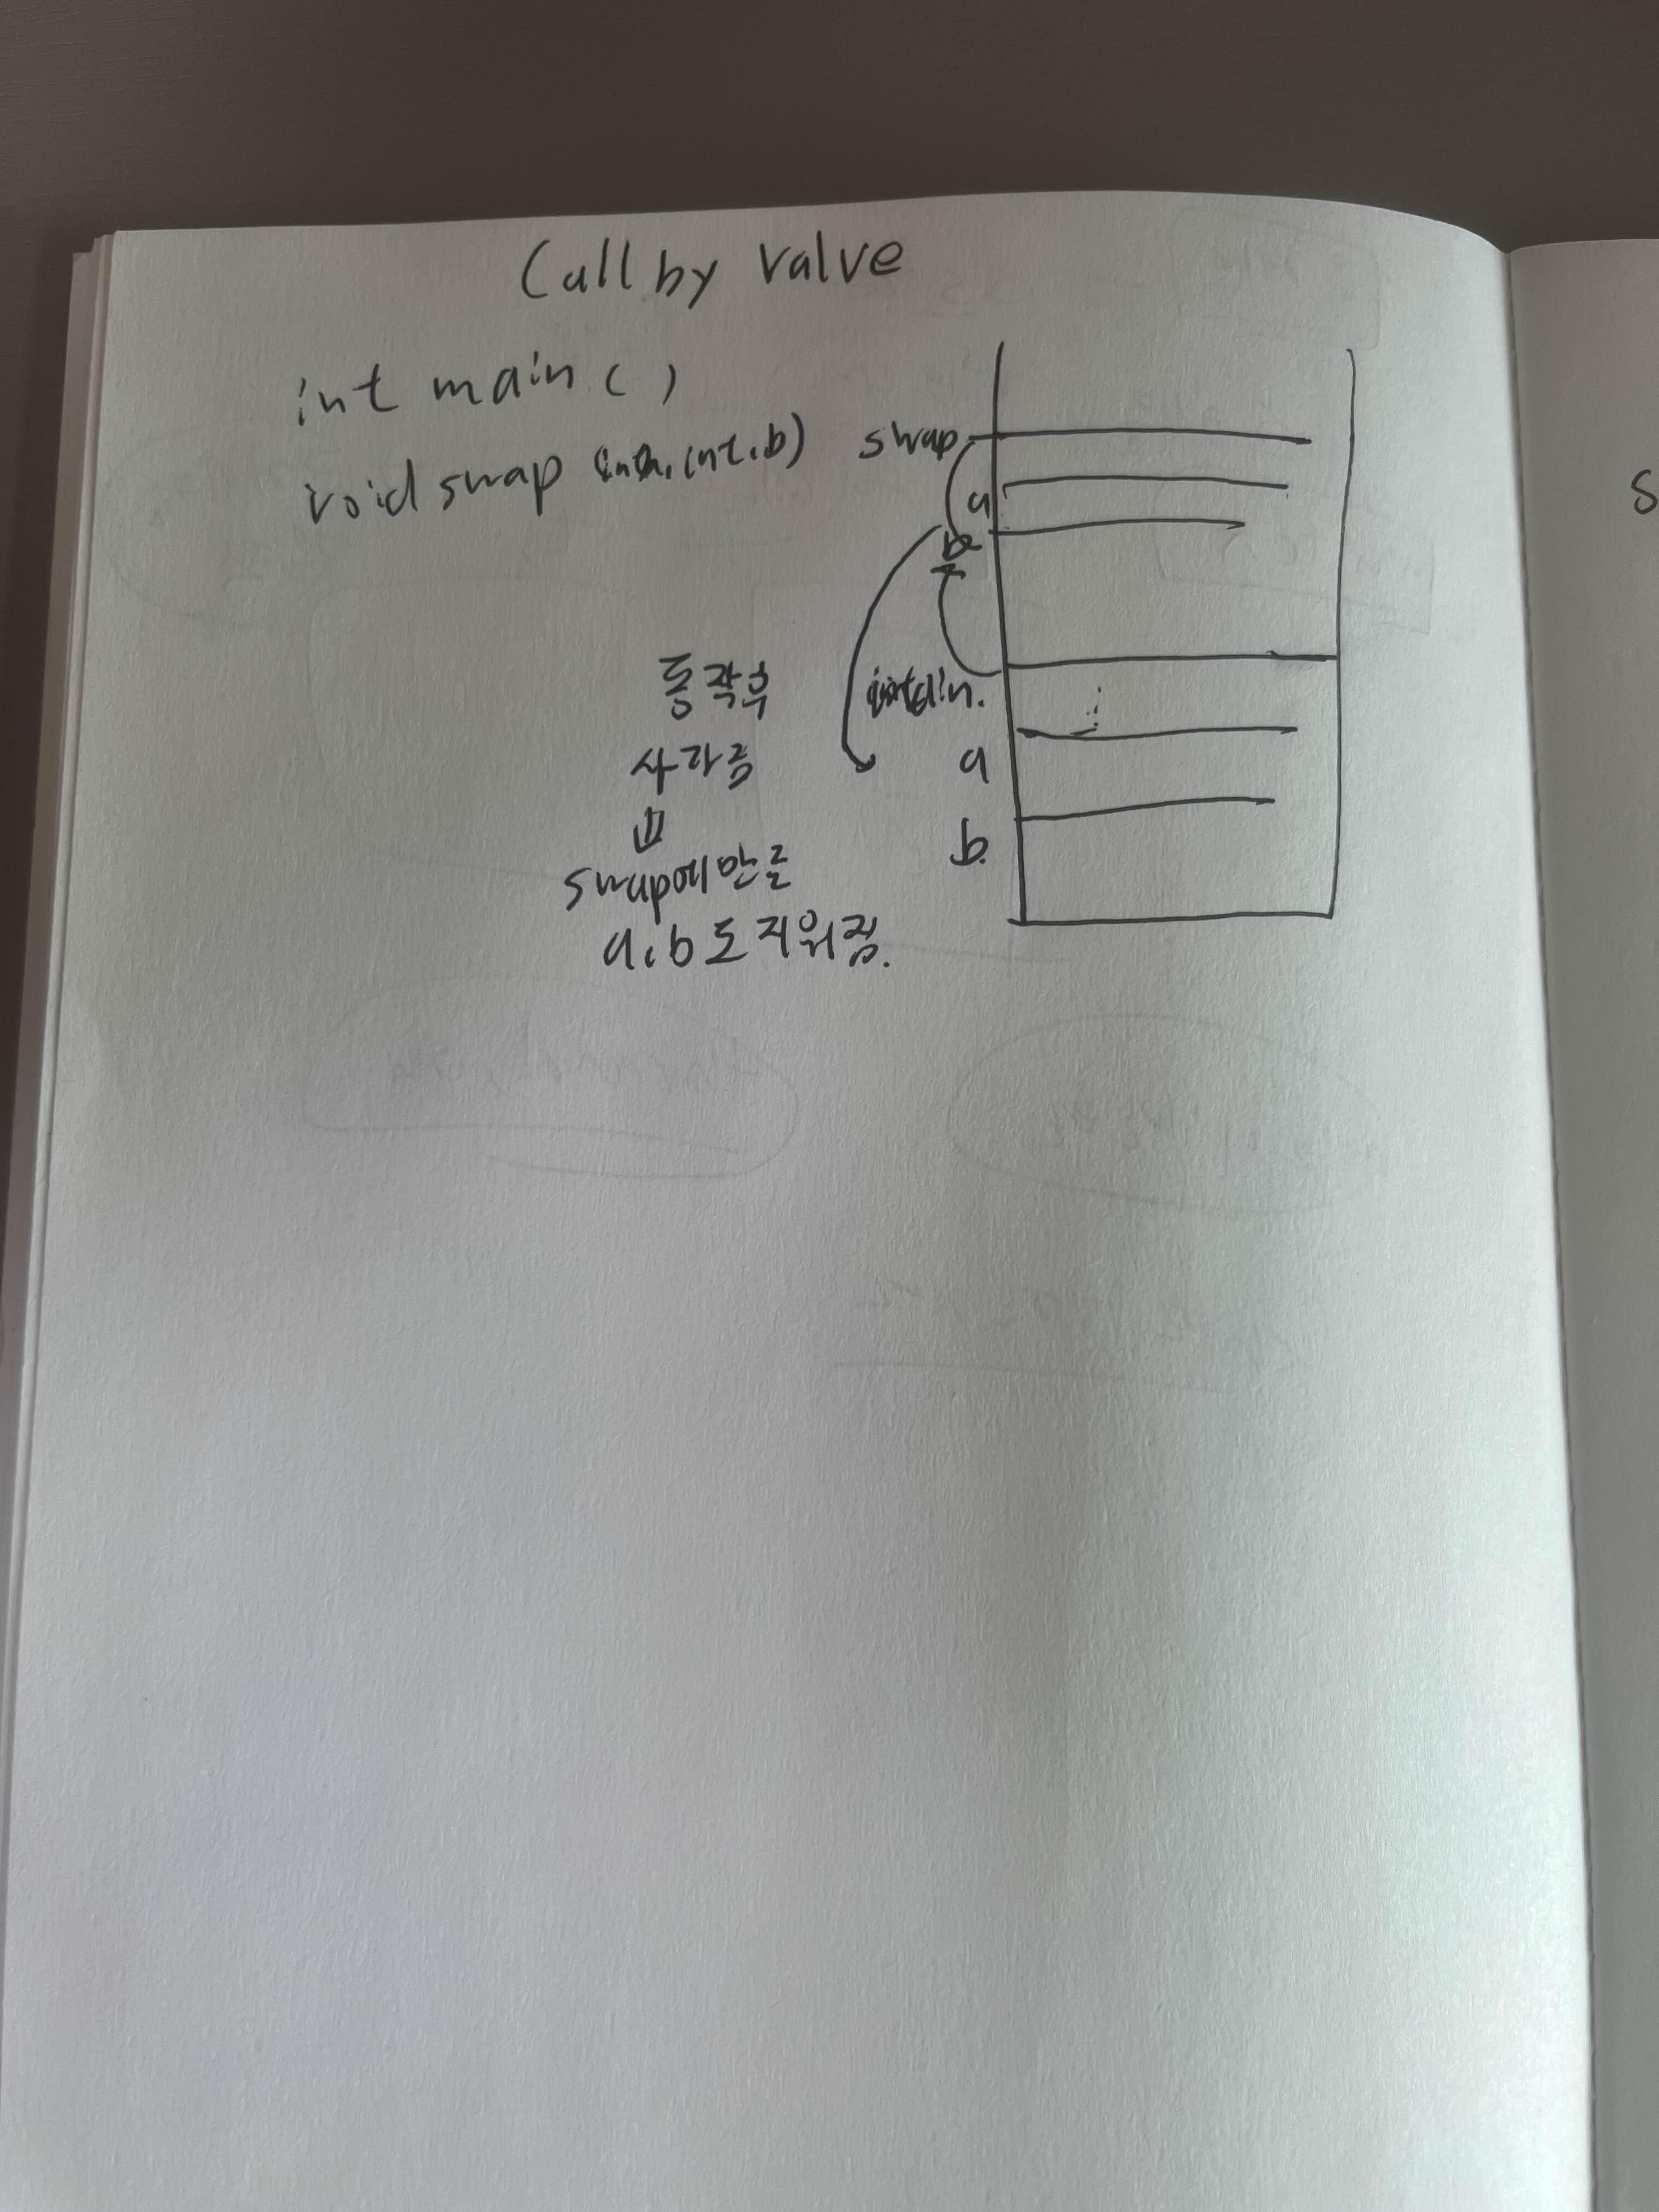 Call by value
int main ( )
void swap (int a, int b)
swap
a
b
int main.
a
b.
동작후
사라짐
⇓
swap에 만든
a, b도 지워짐.
S